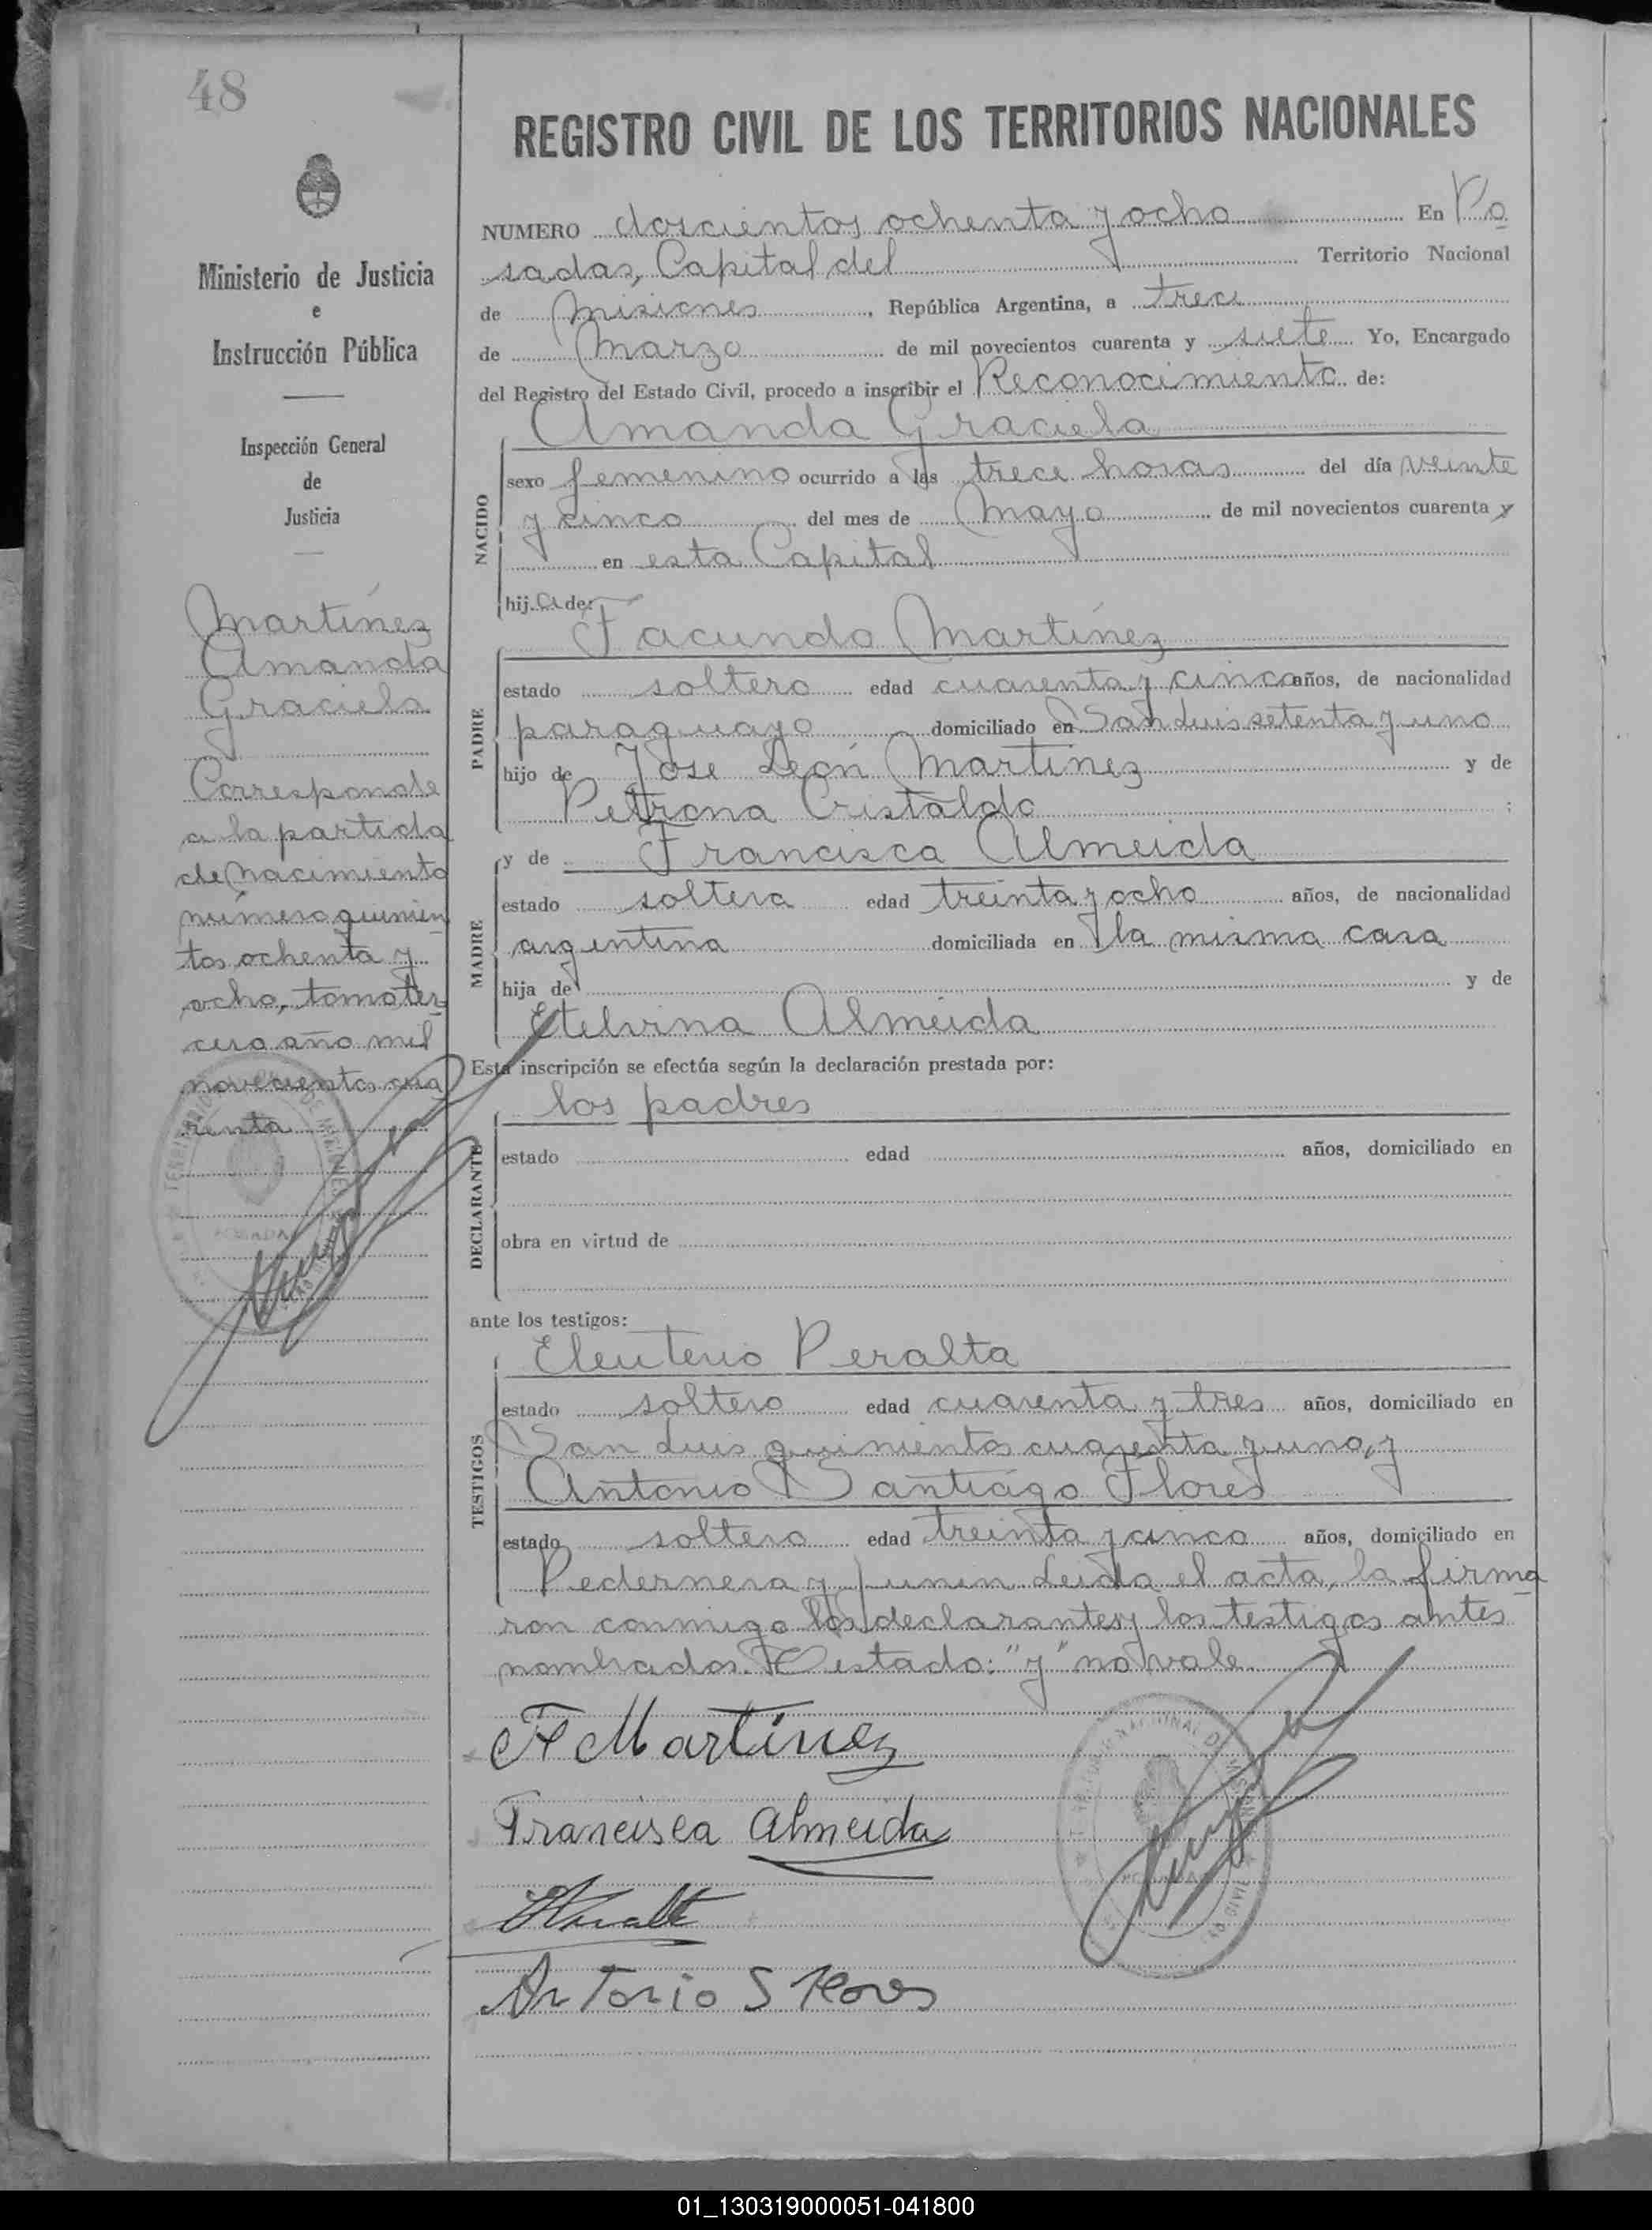 48
REGISTRO CIVIL DE LOS TERRITORIOS NACIONALES
Ministerio de Justicia
e
Instrucción Pública
Inspección General
de
Justicia
Martínez
Amanda
Graciela
Corresponde
a la partida
de nacimiento
número quinien
tos ochenta y
ocho, tomo ter
cero año mil
novecientos cua
renta
NUMERO doscientos ochenta y ocho En Po
sadas, Capital del Territorio Nacional
de Misiones, República Argentina, a trece
de Marzo de mil novecientos cuarenta y siete Yo, Encargado
del Registro del Estado Civil, procedo a inscribir el Reconocimiento de:
Amanda Graciela
NACIDO
sexo femenino ocurrido a las trece horas del día veinte
y cinco del mes de Mayo de mil novecientos cuarenta y
en esta Capital
hij a de:
Facundo Martínez
PADRE
estado soltero edad cuarenta y cinco años, de nacionalidad
paraguayo domiciliado en San Luis setenta y uno
hijo de José León Martínez y de
Petrona Cristaldo ;
y de Francisca Almeida
MADRE
estado soltera edad treinta y ocho años, de nacionalidad
argentina domiciliada en la misma casa
hija de y de
Etelvina Almeida
Esta inscripción se efectúa según la declaración prestada por:
los padres
DECLARANTE
estado edad años, domiciliado en
obra en virtud de
ante los testigos:
Eleuterio Peralta
TESTIGOS
estado soltero edad cuarenta y tres años, domiciliado en
San Luis quinientos cuarenta y uno, y
Antonio Santiago Flores
estado soltero edad treinta y cinco años, domiciliado en
Pedernera y Junin. Leida el acta, la firma
ron conmigo los declarantes y los testigos antes
nombrados. Testado: "y" no vale.
F Martínez
Francisca Almeida
Antonio S Flores
01_130319000051-041800